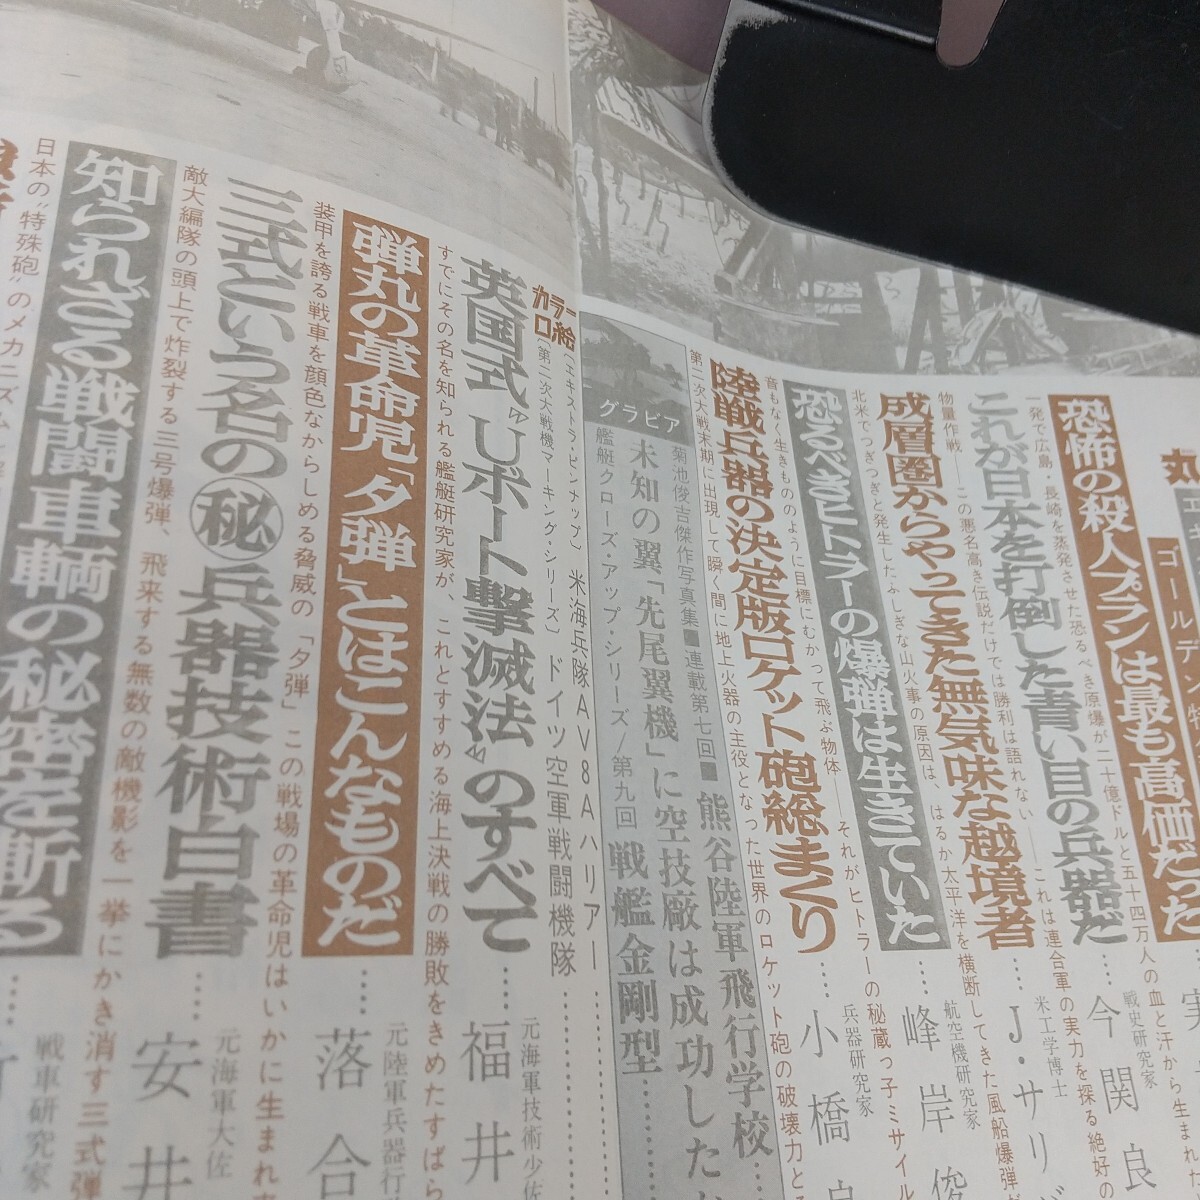 ゴールデン
恐怖の殺人プランは最も高価だった
一発で広島・長崎を蒸発させた恐るべき原爆が二十億ドルと五十四万人の血と汗から生まれた
これが日本を打倒した青い目の兵器だ
戦史研究家
今関良
物量作戦──この悪名高き伝説だけでは勝利は語れない──これは連合軍の実力を探る絶好の
成層圏からやってきた無気味な越境者
米工学博士
J・サリ
北米でつぎつぎと発生したふしぎな山火事の原因は、はるか太平洋を横断してきた風船爆弾
恐るべきヒトラーの爆弾は生きていた
航空機研究家
峰岸俊
音もなく生きもののように目標にむかって飛ぶ物体──それがヒトラーの秘蔵っ子ミサイル
陸戦兵器の決定版ロケット砲総まくり
兵器研究家
小橋良
第二次大戦末期に出現して瞬く間に地上火器の主役となった世界のロケット砲の破壊力と
グラビア
菊池俊吉傑作写真集■連載第七回■熊谷陸軍飛行学校
未知の翼「先尾翼機」に空技廠は成功した
艦艇クローズ・アップ・シリーズ/第九回 戦艦金剛型
カラー口絵
〔エキストラ・ピンナップ〕 米海兵隊AV8Aハリアー
〔第二次大戦機マーキング・シリーズ〕 ドイツ空軍戦闘機隊
英国式〝Uボート撃滅法〟のすべて
元海軍技術少佐
福井
すでにその名を知られる艦艇研究家が、これとすすめる海上決戦の勝敗をきめたすばら
弾丸の革命児「タ弾」とはこんなものだ
元陸軍兵器行
落合
装甲を誇る戦車を顔色なからしめる脅威の「タ弾」この戦場の革命児はいかに生まれ
三式という名の㊙兵器技術白書
元海軍大佐
安井
敵大編隊の頭上で炸裂する三号爆弾、飛来する無数の敵機影を一挙にかき消す三式弾
知られざる戦闘車輌の秘密を斬る
戦車研究家
日本の〝特殊砲〟のメカニズム